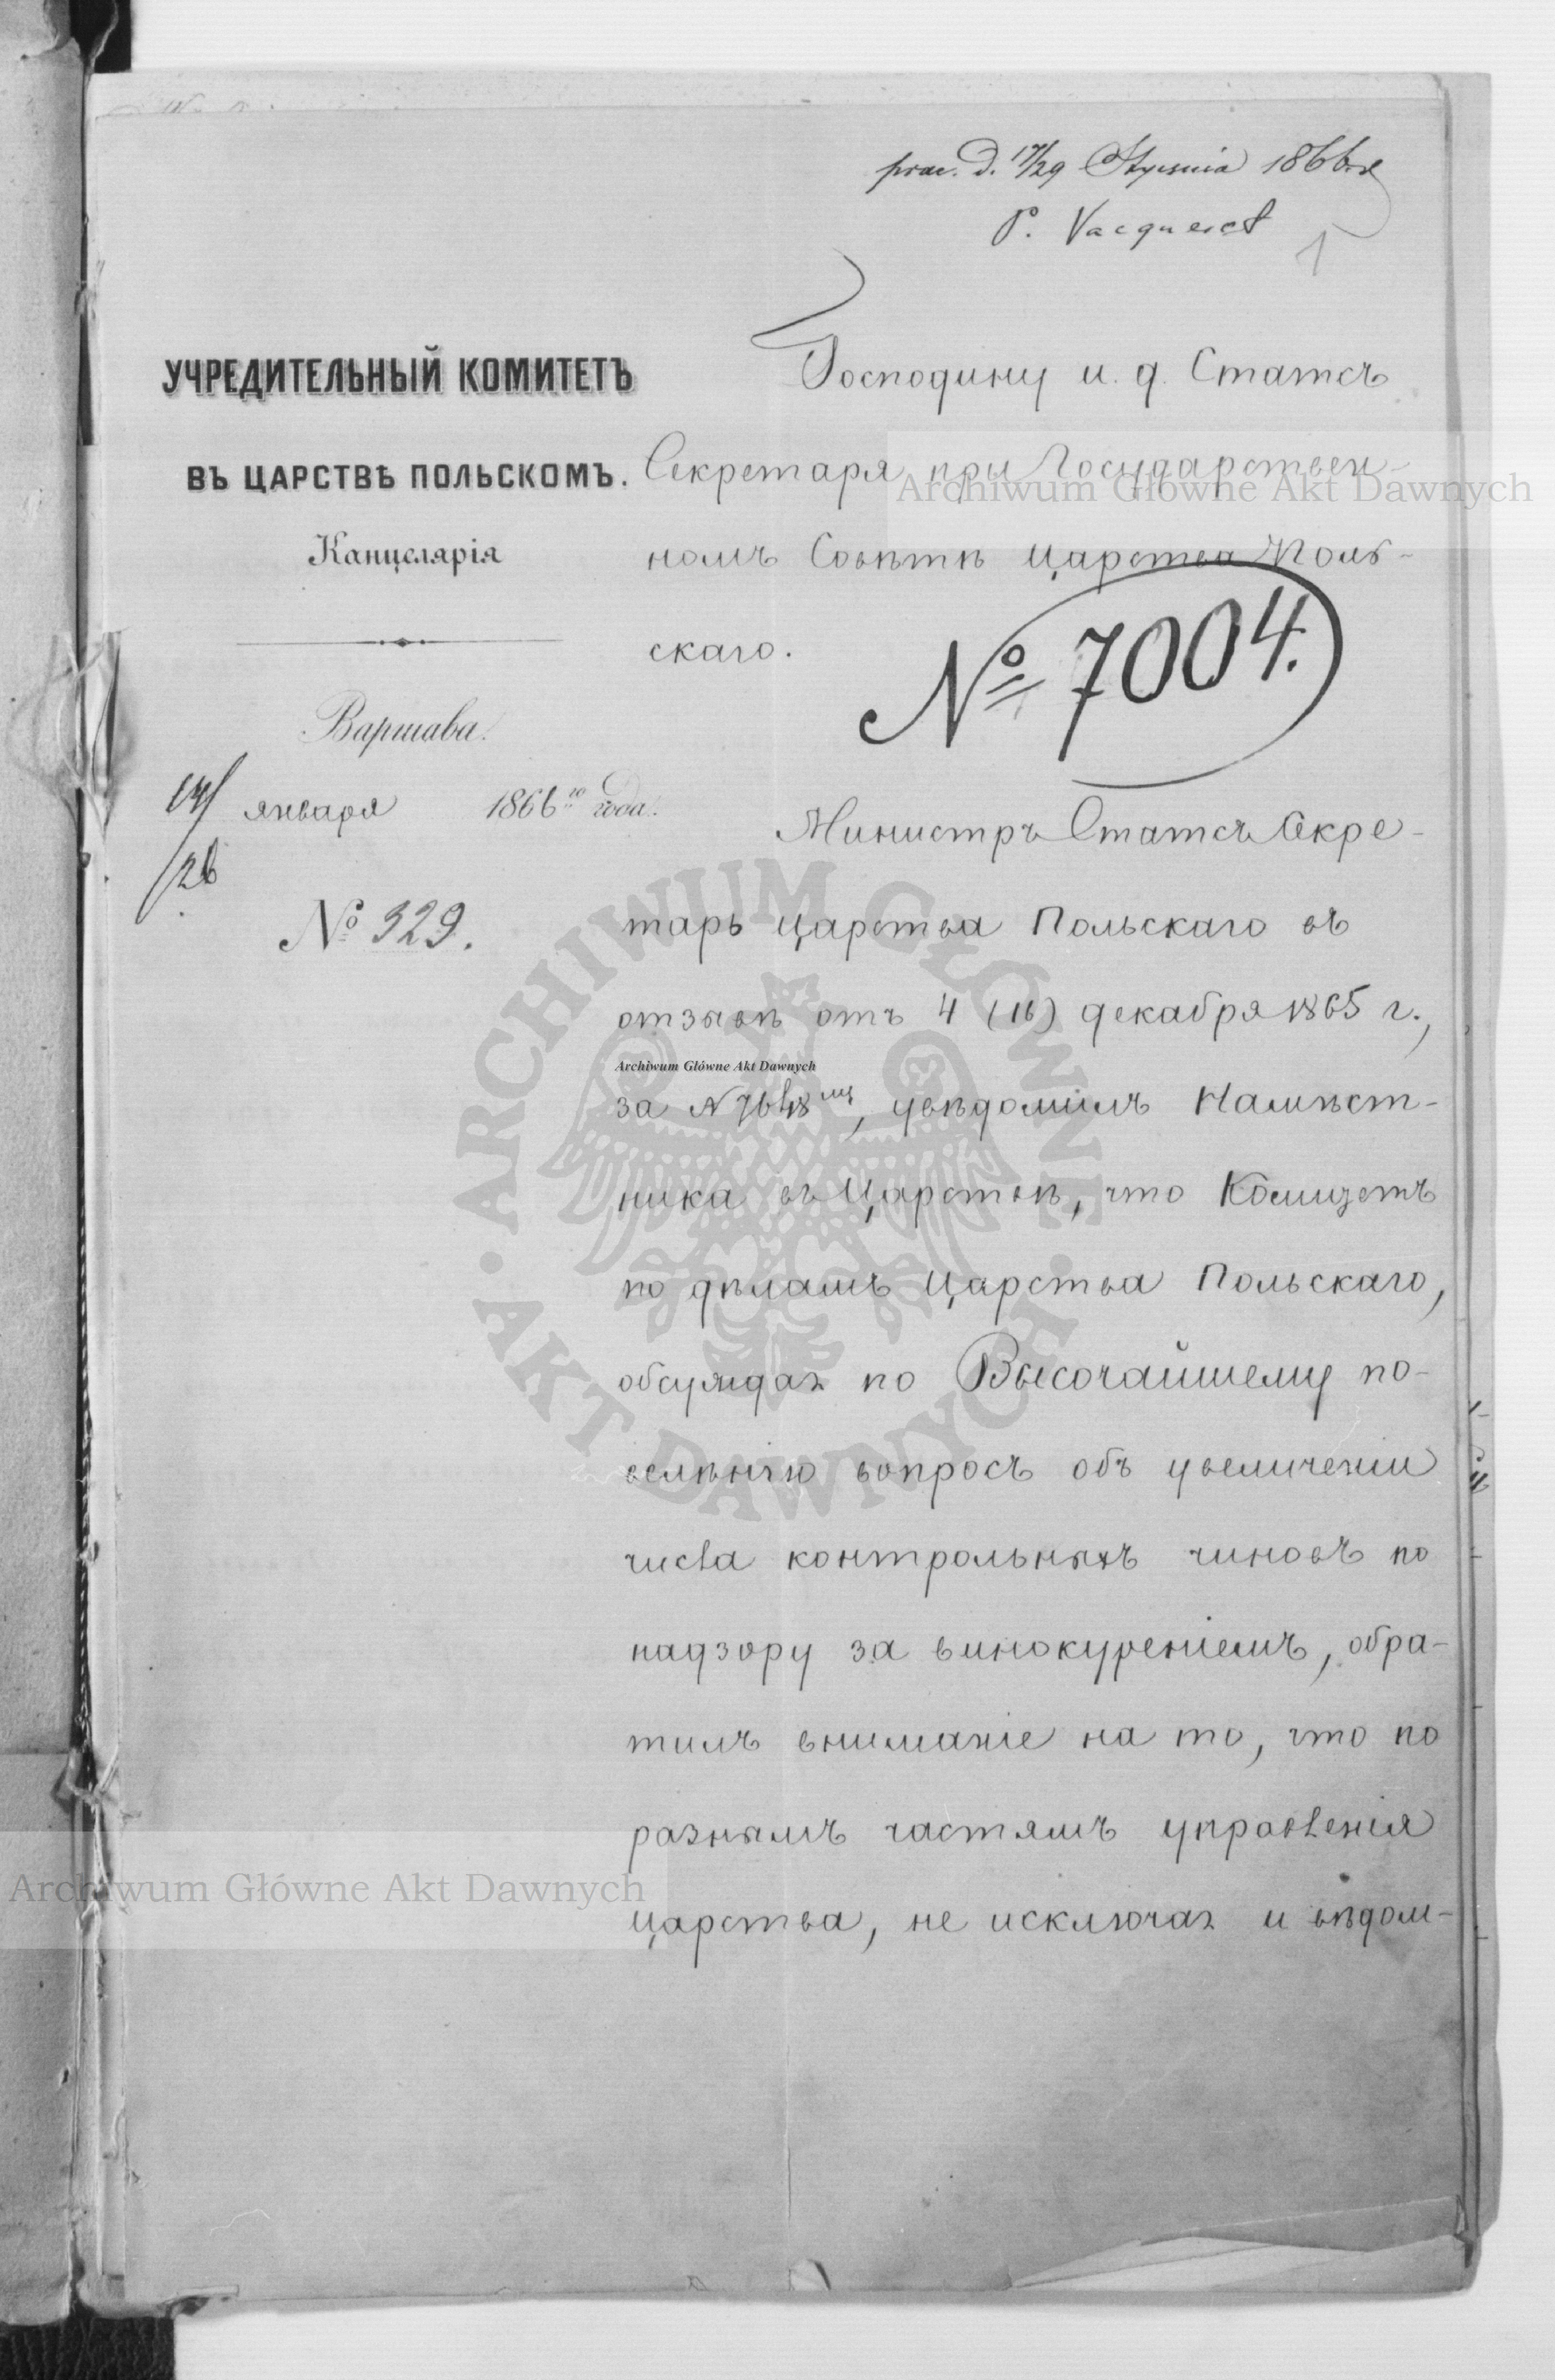 prae. d. 17/29 Stycznia 1866 r.
P. Vacqueret
1
УЧРЕДИТЕЛЬНЫЙ КОМИТЕТЪ
ВЪ ЦАРСТВѢ ПОЛЬСКОМЪ.
Канцелярія
Варшава.
14/26 января 1866го года.
№ 329.
Господину и. д. Статсъ
Секретаря при Государствен-
номъ Совѣтѣ Царства Поль-
скаго.
№ 7004.
Министръ Статсъ Секре-
тарь Царства Польскаго въ
отзывѣ отъ 4 (16) декабря 1865 г.,
за №, увѣдомилъ Намѣст-
ника въ Царствѣ, что Комитетъ
по дѣламъ Царства Польскаго,
обсуждая по Высочайшему по-
велѣнію вопросъ объ увеличеніи
числа контрольныхъ чиновъ по
надзору за винокуреніемъ, обра-
тилъ вниманіе на то, что по
разнымъ частямъ управленія
Царства, не исключая и вѣдом-
Archiwum Główne Akt Dawnych
Archiwum Główne Akt Dawnych
ARCHIWUM GŁÓWNE AKT DAWNYCH
Archiwum Główne Akt Dawnych